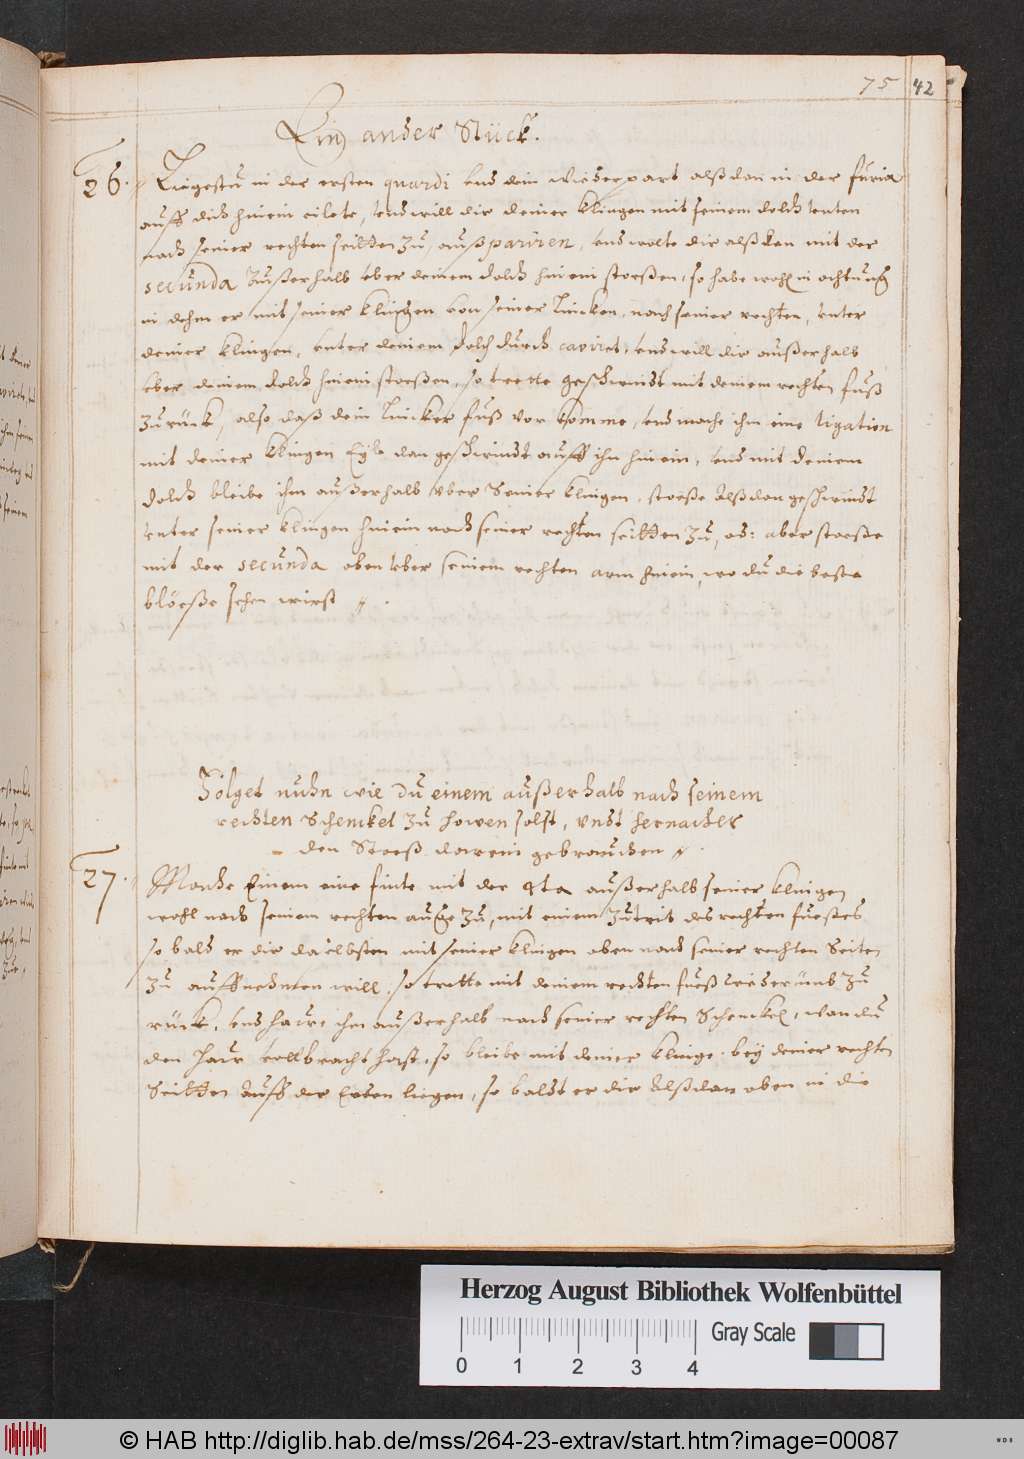 75 42
Ein ander Stück.
26. Liegestu in der ersten quardi vnd dein wiederpart alßdan in der furia
auff dich hinein eilete, vnd will dir deiner klingen mit seinem dolch vnten
nach seiner rechten seitten zu, außpariren, vnd wolte dir alßdan mit der
secunda außerhalb vber deinem dolch hinein stoeßen, so habe wohl in achtung
in dehm er mit seiner klingen von seiner Lincken, nach seiner rechten, vnter
deiner klingen, vnter deinem dolch durch caviret, vnd will dir außerhalb
vber deinem dolch hinein stoeßen, so trette geschwindt mit deinem rechten fuß
zurück, also daß dein Lincker fuß vor komme, vnd mache ihm eine ligation
mit deiner klingen Eyle dan geschwindt auff ihn hinein, vnd mit deinem
dolch bleibe ihm außerhalb vber Seiner klingen, stoeße alßdan geschwindt
vnter seiner klingen hinein nach seiner rechten seitten zu, od: aber stoeße
mit der secunda oben vber seinem rechten arm hinein, wo du die beste
blöeße sehen wirst
Folget nuhn wie du einem außerhalb nach seinem
rechten Schenckel zu howen solst, vndt hernacher
den Stoeß darein gebrauchen
27. Mache Einem eine finte mit der 4ta außerhalb seiner klingen
wohl nach seinem rechten auge zu, mit einem zutrit des rechten fueßes
so bald er dir daselbsten mit seiner klingen oben nach seiner rechten Seiten
zu auffnehmen will, so trette mit deinem rechten fueß wiederumb zu
rück, vnd hauw ihm außerhalb nach seiner rechten Schenckel, wan du
den hauw vollbracht hast, so bleibe mit deiner klinge bey deiner rechten
Seitten auff der Erden liegen, so baldt er dir alßdan oben in die
Herzog August Bibliothek Wolfenbüttel
Gray Scale
0 1 2 3 4
© HAB http://diglib.hab.de/mss/264-23-extrav/start.htm?image=00087